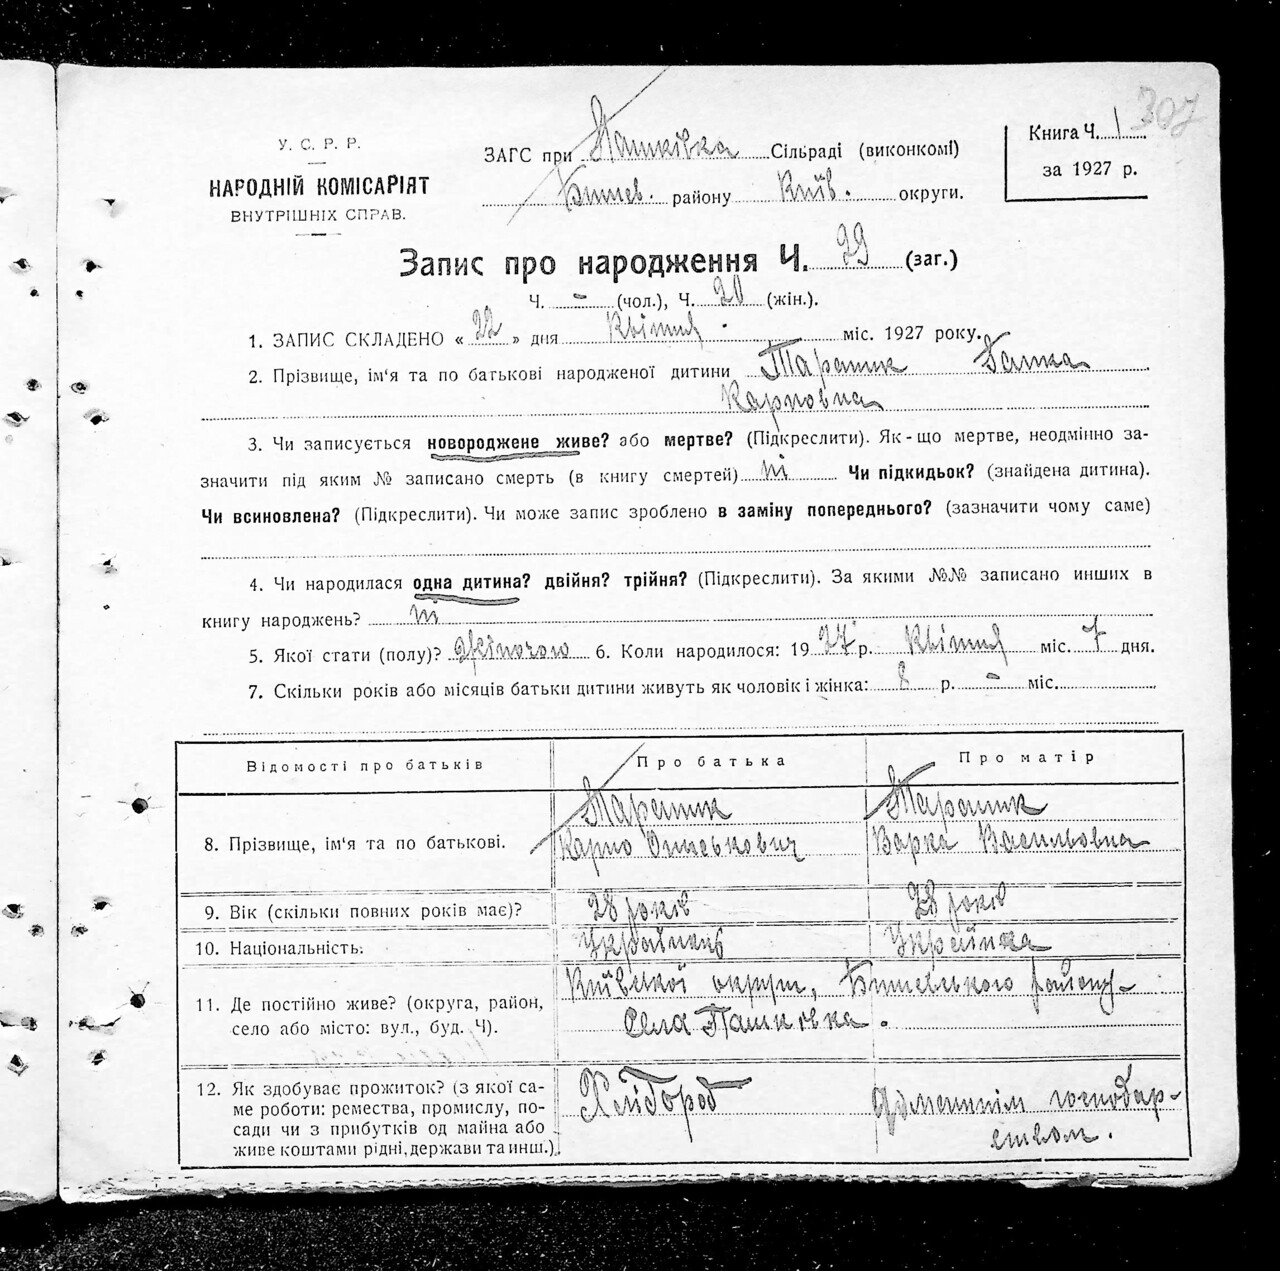 307
У. С. Р. Р.
НАРОДНІЙ КОМІСАРІЯТ
ВНУТРІШНІХ СПРАВ.
ЗАГС при Пашківка Сільраді (виконкомі)
Бишев. району Київ. округи.
Книга Ч. 1
за 1927 р.
Запис про народження Ч. 29 (заг.)
Ч. - (чол.), Ч. 20 (жін.).
1. ЗАПИС СКЛАДЕНО « 22 » дня Квітня міс. 1927 року.
2. Прізвище, ім'я та по батькові народженої дитини Тарашик Галка
Карповна
3. Чи записується новороджене живе? або мертве? (Підкреслити). Як-що мертве, неодмінно за-
значити під яким № записано смерть (в книгу смертей) ні Чи підкидьок? (знайдена дитина).
Чи всиновлена? (Підкреслити). Чи може запис зроблено в заміну попереднього? (зазначити чому саме)
4. Чи народилася одна дитина? двійня? трійня? (Підкреслити). За якими №№ записано инших в
книгу народжень? ні
5. Якої стати (полу)? жіночого 6. Коли народилося: 1927 р. Квітня міс. 7 дня.
7. Скільки років або місяців батьки дитини живуть як чоловік і жінка: 8 р. - міс.
Відомості про батьків Про батька Про матір
8. Прізвище, ім'я та по батькові. Тарашик Тарашик
КарпоОниськович Варка Васильовна
9. Вік (скільки повних років має)? 28 років 28 років
10. Національність. Українець Українка
11. Де постійно живе? (округа, район, Київської округи, Бишевського району
село або місто: вул., буд. Ч). Села Пашковка.
12. Як здобуває прожиток? (з якої са-
ме роботи: ремества, промислу, по-
сади чи з прибутків од майна або
живе коштами рідні, держави та инш.). Хлібороб Домашнім господар-
ством.